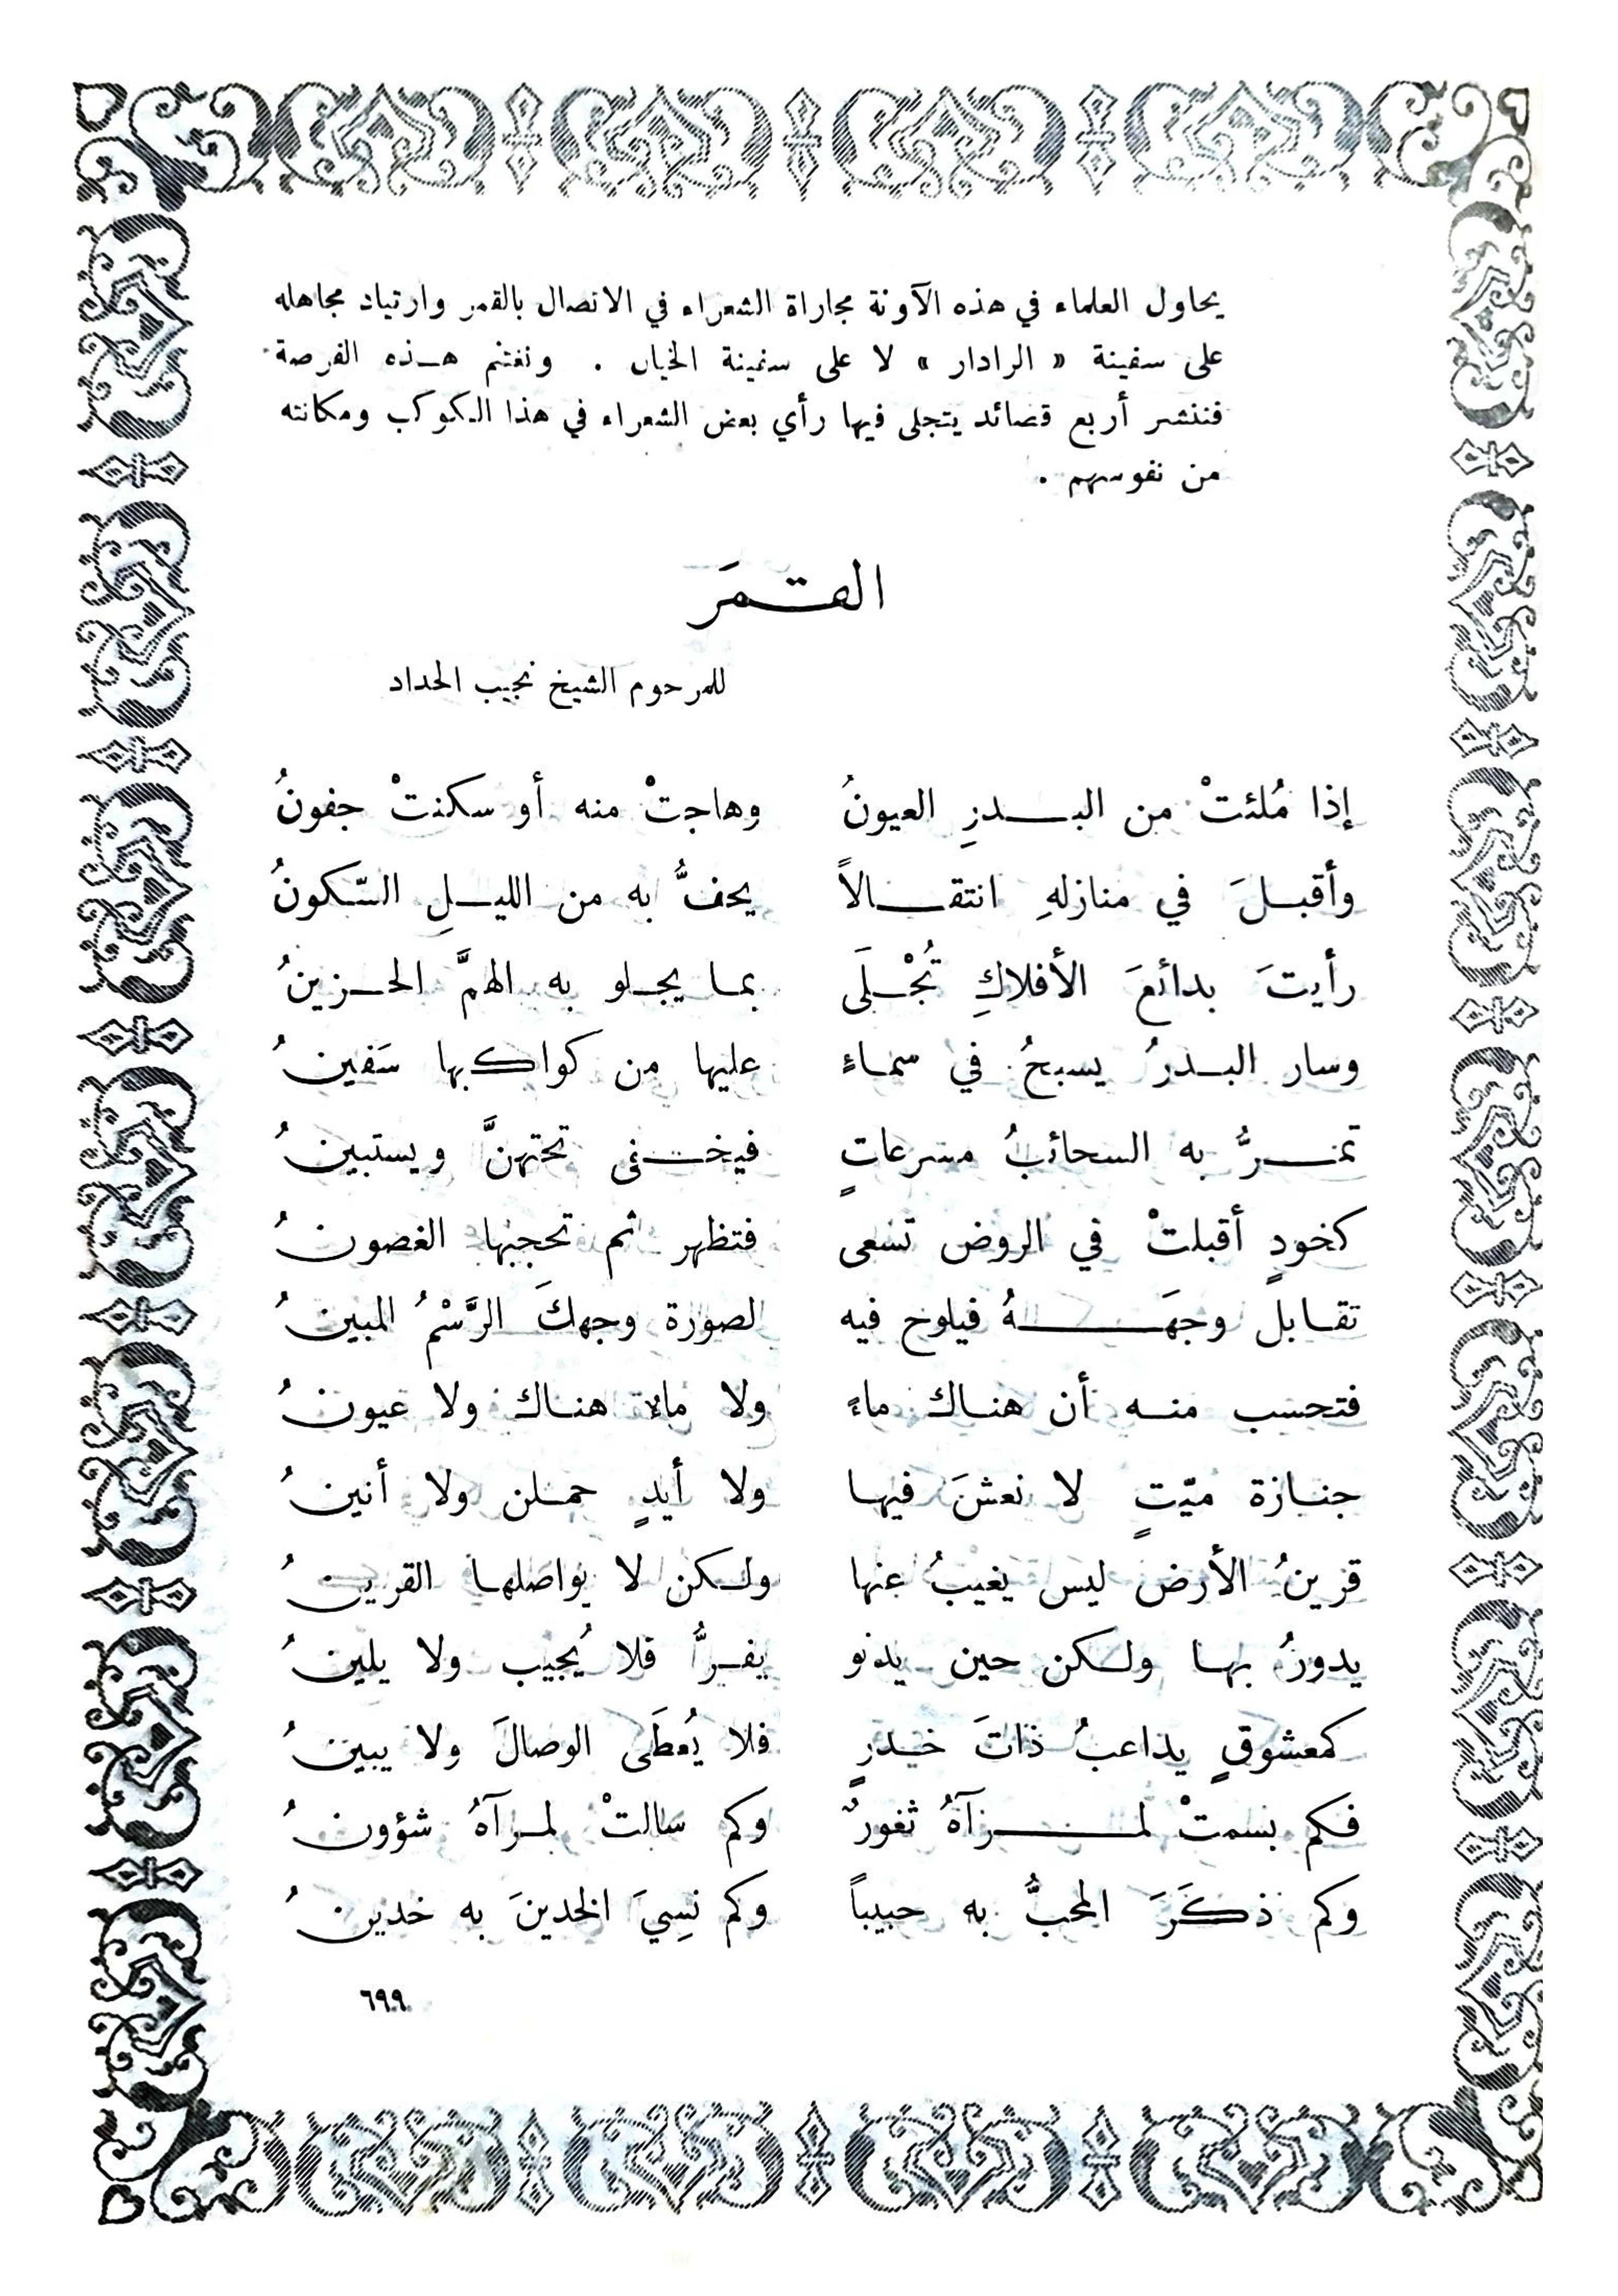 يحاول العلماء في هذه الآونة مجاراة الشعراء في الاتصال بالقمر وارتياد مجاهله
على سفينة « الرادار » لا على سفينة الخيال . ونغتنم هـذه الفرصة
فننشر أربع قصائد يتجلى فيها رأي بعض الشعراء في هذا الكوكب ومكانته
من نفوسهم .
القـمَر
للمرحوم الشيخ نجيب الحداد
إذا مُلئتْ من البـدرِ العيونُ وهاجتْ منه أو سكنتْ جفونُ
وأقبـلَ في منازلهِ انتقـالاً يحفُّ به من الليـلِ السّكونُ
رأيتَ بدائعَ الأفلاكِ تُجْـلَى بمـا يجـلو به الهمَّ الحـزينُ
وسار البـدرُ يسبحُ في سمـاءٍ عليها من كواكبها سَفينُ
تمـرُّ به السحائبُ مسرعاتٍ فيخـفى تحتهنَّ ويستبينُ
كخودٍ أقبلتْ في الروض تسعى فتظهر ثم تحجبها الغصونُ
تقـابل وجهَـهُ فيلوح فيه لصورة وجهكَ الرَّسْمُ المبينُ
فتحسب منـه أن هنـاك ماءً ولا ماءٌ هنـاك ولا عيونُ
جنـازة ميّتٍ لا نعشَ فيهـا ولا أيدٍ حمـلن ولا أنينُ
قرينُ الأرض ليس يغيبُ عنها ولـكن لا يواصلهـا القرينُ
يدورُ بهـا ولـكن حين يدنو يفـرُّ فلا يُجيب ولا يلينُ
كمعشوقٍ يداعبُ ذاتَ خـدرٍ فلا يُعطَى الوصالَ ولا يبينُ
فـكم بسمتْ لمـرآهُ ثغورٌ وكم سالتْ لمـرآهُ شؤونُ
وكم ذكَرَ المحبُّ به حبيباً وكم نسِيَ الخدينَ به خدينُ
٦٩٩